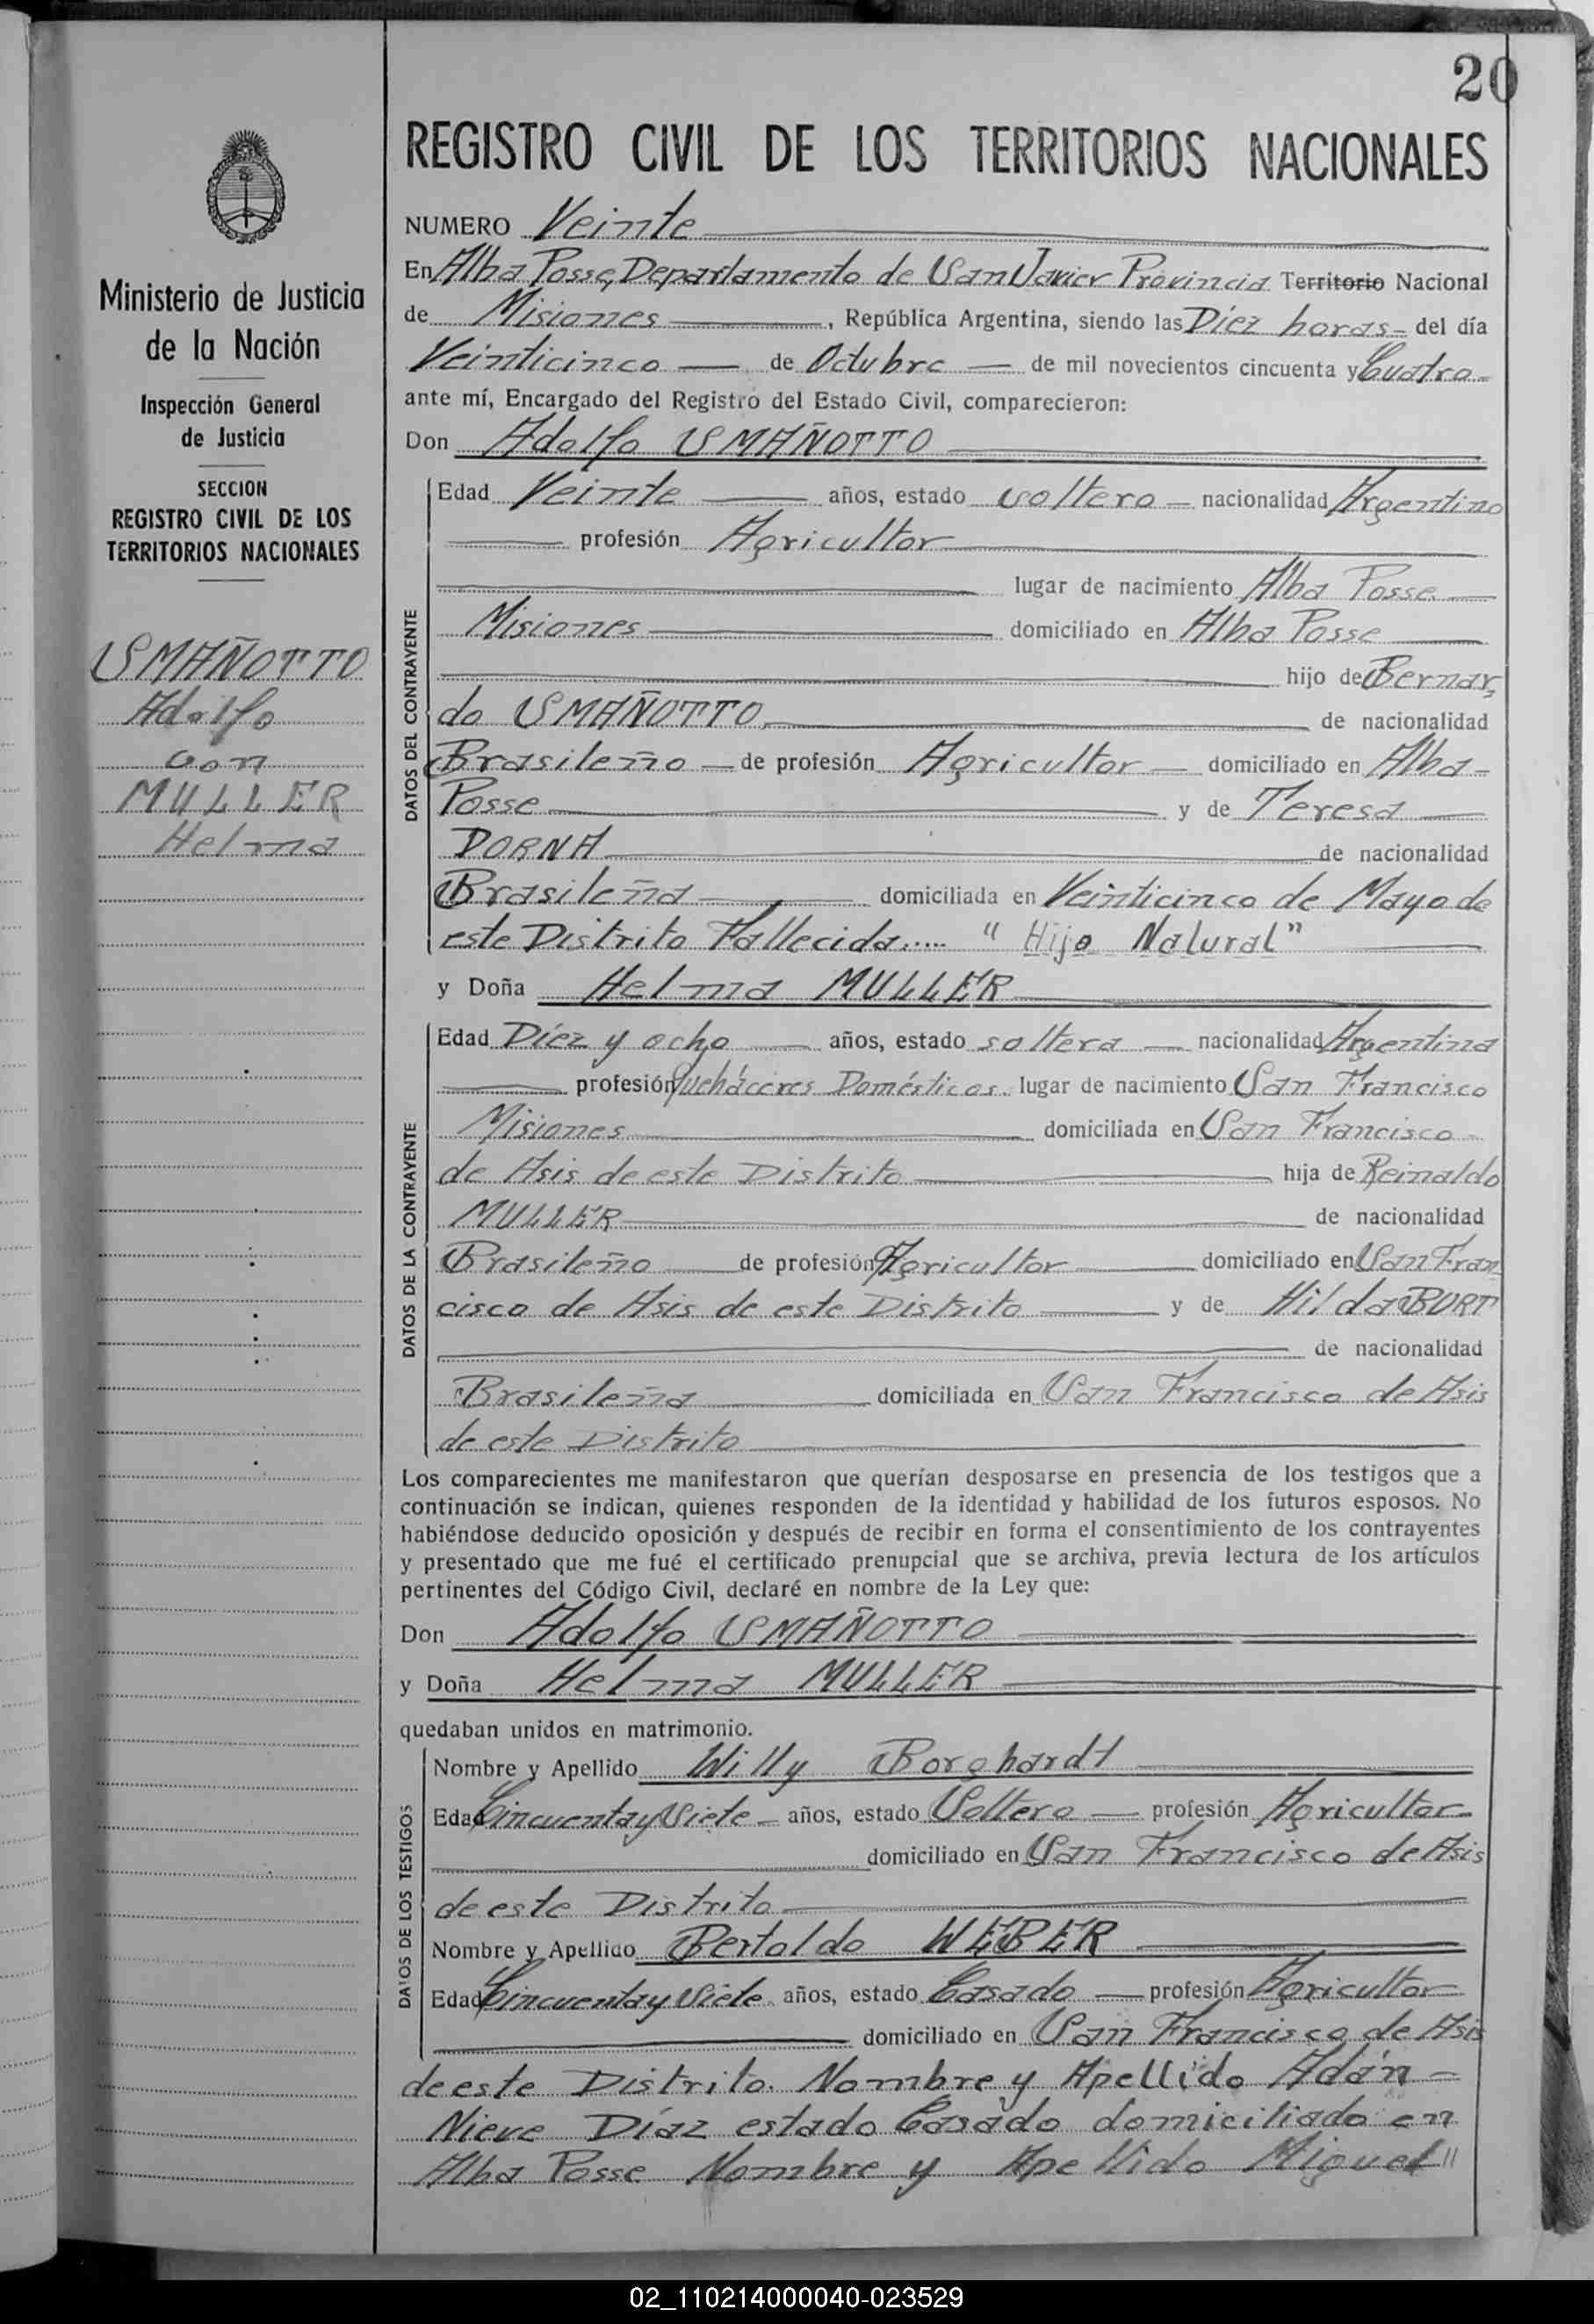 20
REGISTRO CIVIL DE LOS TERRITORIOS NACIONALES
Ministerio de Justicia
de la Nación
Inspección General
de Justicia
SECCION
REGISTRO CIVIL DE LOS
TERRITORIOS NACIONALES
SMAÑOTTO
Adolfo
con
MULLER
Helma
NUMERO Veinte
En Alba Posse, Departamento de San Javier Provincia Territorio Nacional
de Misiones, República Argentina, siendo las Diez horas del día
Veinticinco de Octubre de mil novecientos cincuenta y Cuatro
ante mí, Encargado del Registro del Estado Civil, comparecieron:
Don Adolfo SMAÑOTTO
DATOS DEL CONTRAYENTE
Edad Veinte años, estado soltero nacionalidad Argentino
profesión Agricultor
lugar de nacimiento Alba Posse
Misiones domiciliado en Alba Posse
hijo de Bernar,
do SMAÑOTTO de nacionalidad
Brasileño de profesión Agricultor domiciliado en Alba
Posse y de Teresa
DORNA de nacionalidad
Brasileña domiciliada en Veinticinco de Mayo de
este Distrito Fallecida..... "Hijo Natural"
y Doña Helma MULLER
DATOS DE LA CONTRAYENTE
Edad Diez y ocho años, estado soltera nacionalidad Argentina
profesión Queháceres Domésticos. lugar de nacimiento San Francisco
Misiones domiciliada en San Francisco
de Asis de este Distrito hija de Reinaldo
MULLER de nacionalidad
Brasileño de profesión Agricultor domiciliado en San Fran
cisco de Asis de este Distrito y de Hilda BURT
de nacionalidad
Brasileña domiciliada en San Francisco de Asis
de este Distrito
Los comparecientes me manifestaron que querían desposarse en presencia de los testigos que a
continuación se indican, quienes responden de la identidad y habilidad de los futuros esposos. No
habiéndose deducido oposición y después de recibir en forma el consentimiento de los contrayentes
y presentado que me fué el certificado prenupcial que se archiva, previa lectura de los artículos
pertinentes del Código Civil, declaré en nombre de la Ley que:
Don Adolfo SMAÑOTTO
y Doña Helma MULLER
quedaban unidos en matrimonio.
DATOS DE LOS TESTIGOS
Nombre y Apellido Willy Borghardt
Edad Cincuenta y Siete años, estado Soltero profesión Agricultor
domiciliado en San Francisco de Asis
de este Distrito
Nombre y Apellido Bertoldo WEBER
Edad Cincuenta y Siete años, estado Casado profesión Agricultor
domiciliado en San Francisco de Asis
de este Distrito. Nombre y Apellido Adán
Nieve Díaz estado Casado domiciliado en
Alba Posse Nombre y Apellido Miguel "
02_110214000040-023529